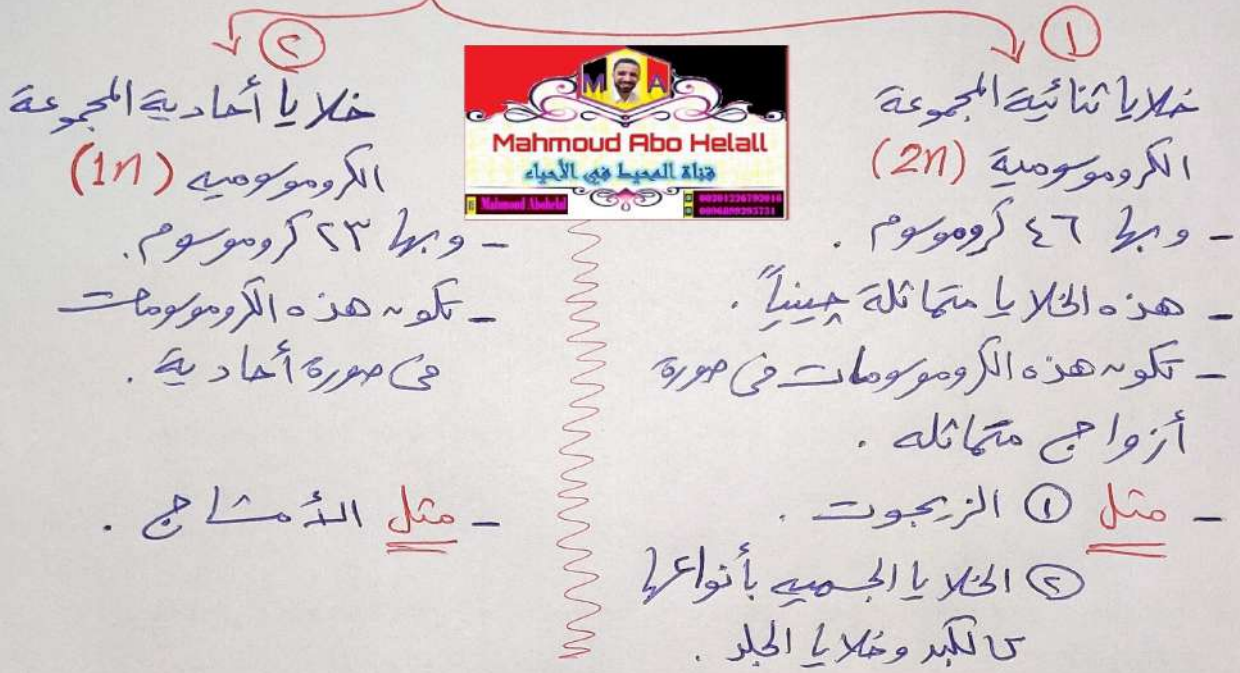 ①
خلايا ثنائية المجموعة
الكروموسومية (2n)
- وبها ٤٦ كروموسوم .
- هذه الخلايا متماثلة جينياً .
- تكون هذه الكروموسومات في صورة
أزواج متماثله .
- مثل ① الزيجوت .
② الخلايا الجسميه بأنواعها
كالكبد وخلايا الجلد .
M A
Mahmoud Abo Helall
قناة المحيط في الأحياء
Mahmoud Abohelal
②
خلايا أحادية المجموعة
الكروموسوميه (1n)
- وبها ٢٣ كروموسوم .
- تكون هذه الكروموسومات
في صورة أحادية .
- مثل الأمشاج .